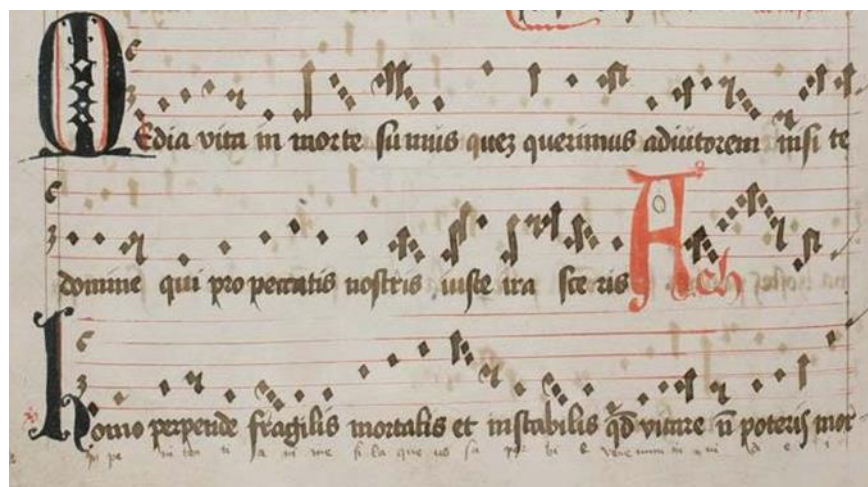 Media vita in morte sumus quez querimus adiutorem nisi te
domine qui pro peccatis nostris iuste irasceris Ach
Homo perpende fragilis mortalis et instabilis qd vitare n poteris mor